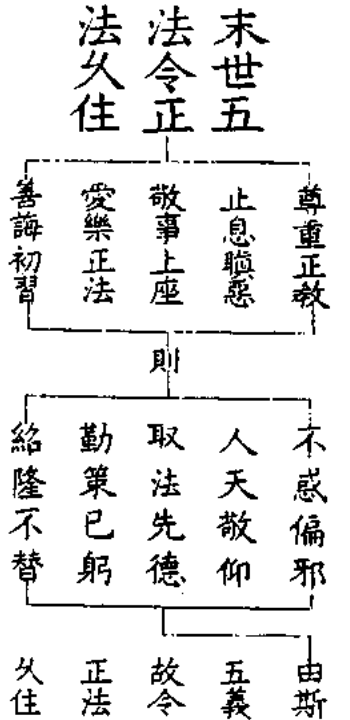 末世五
法令正
法久住
尊重正教
止息瞋惡
敬事上座
愛樂正法
善誨初習
則
不惑偏邪
人天敬仰
取法先德
勤策已躬
紹隆不替
由斯
五義
故令
正法
久住